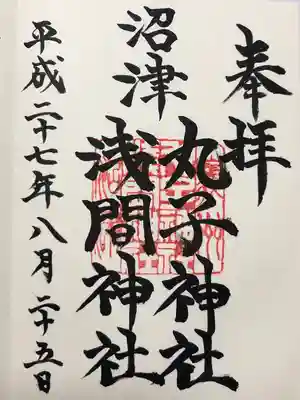 奉拝
沼津
丸子神社
浅間神社
平成二十七年八月二十五日